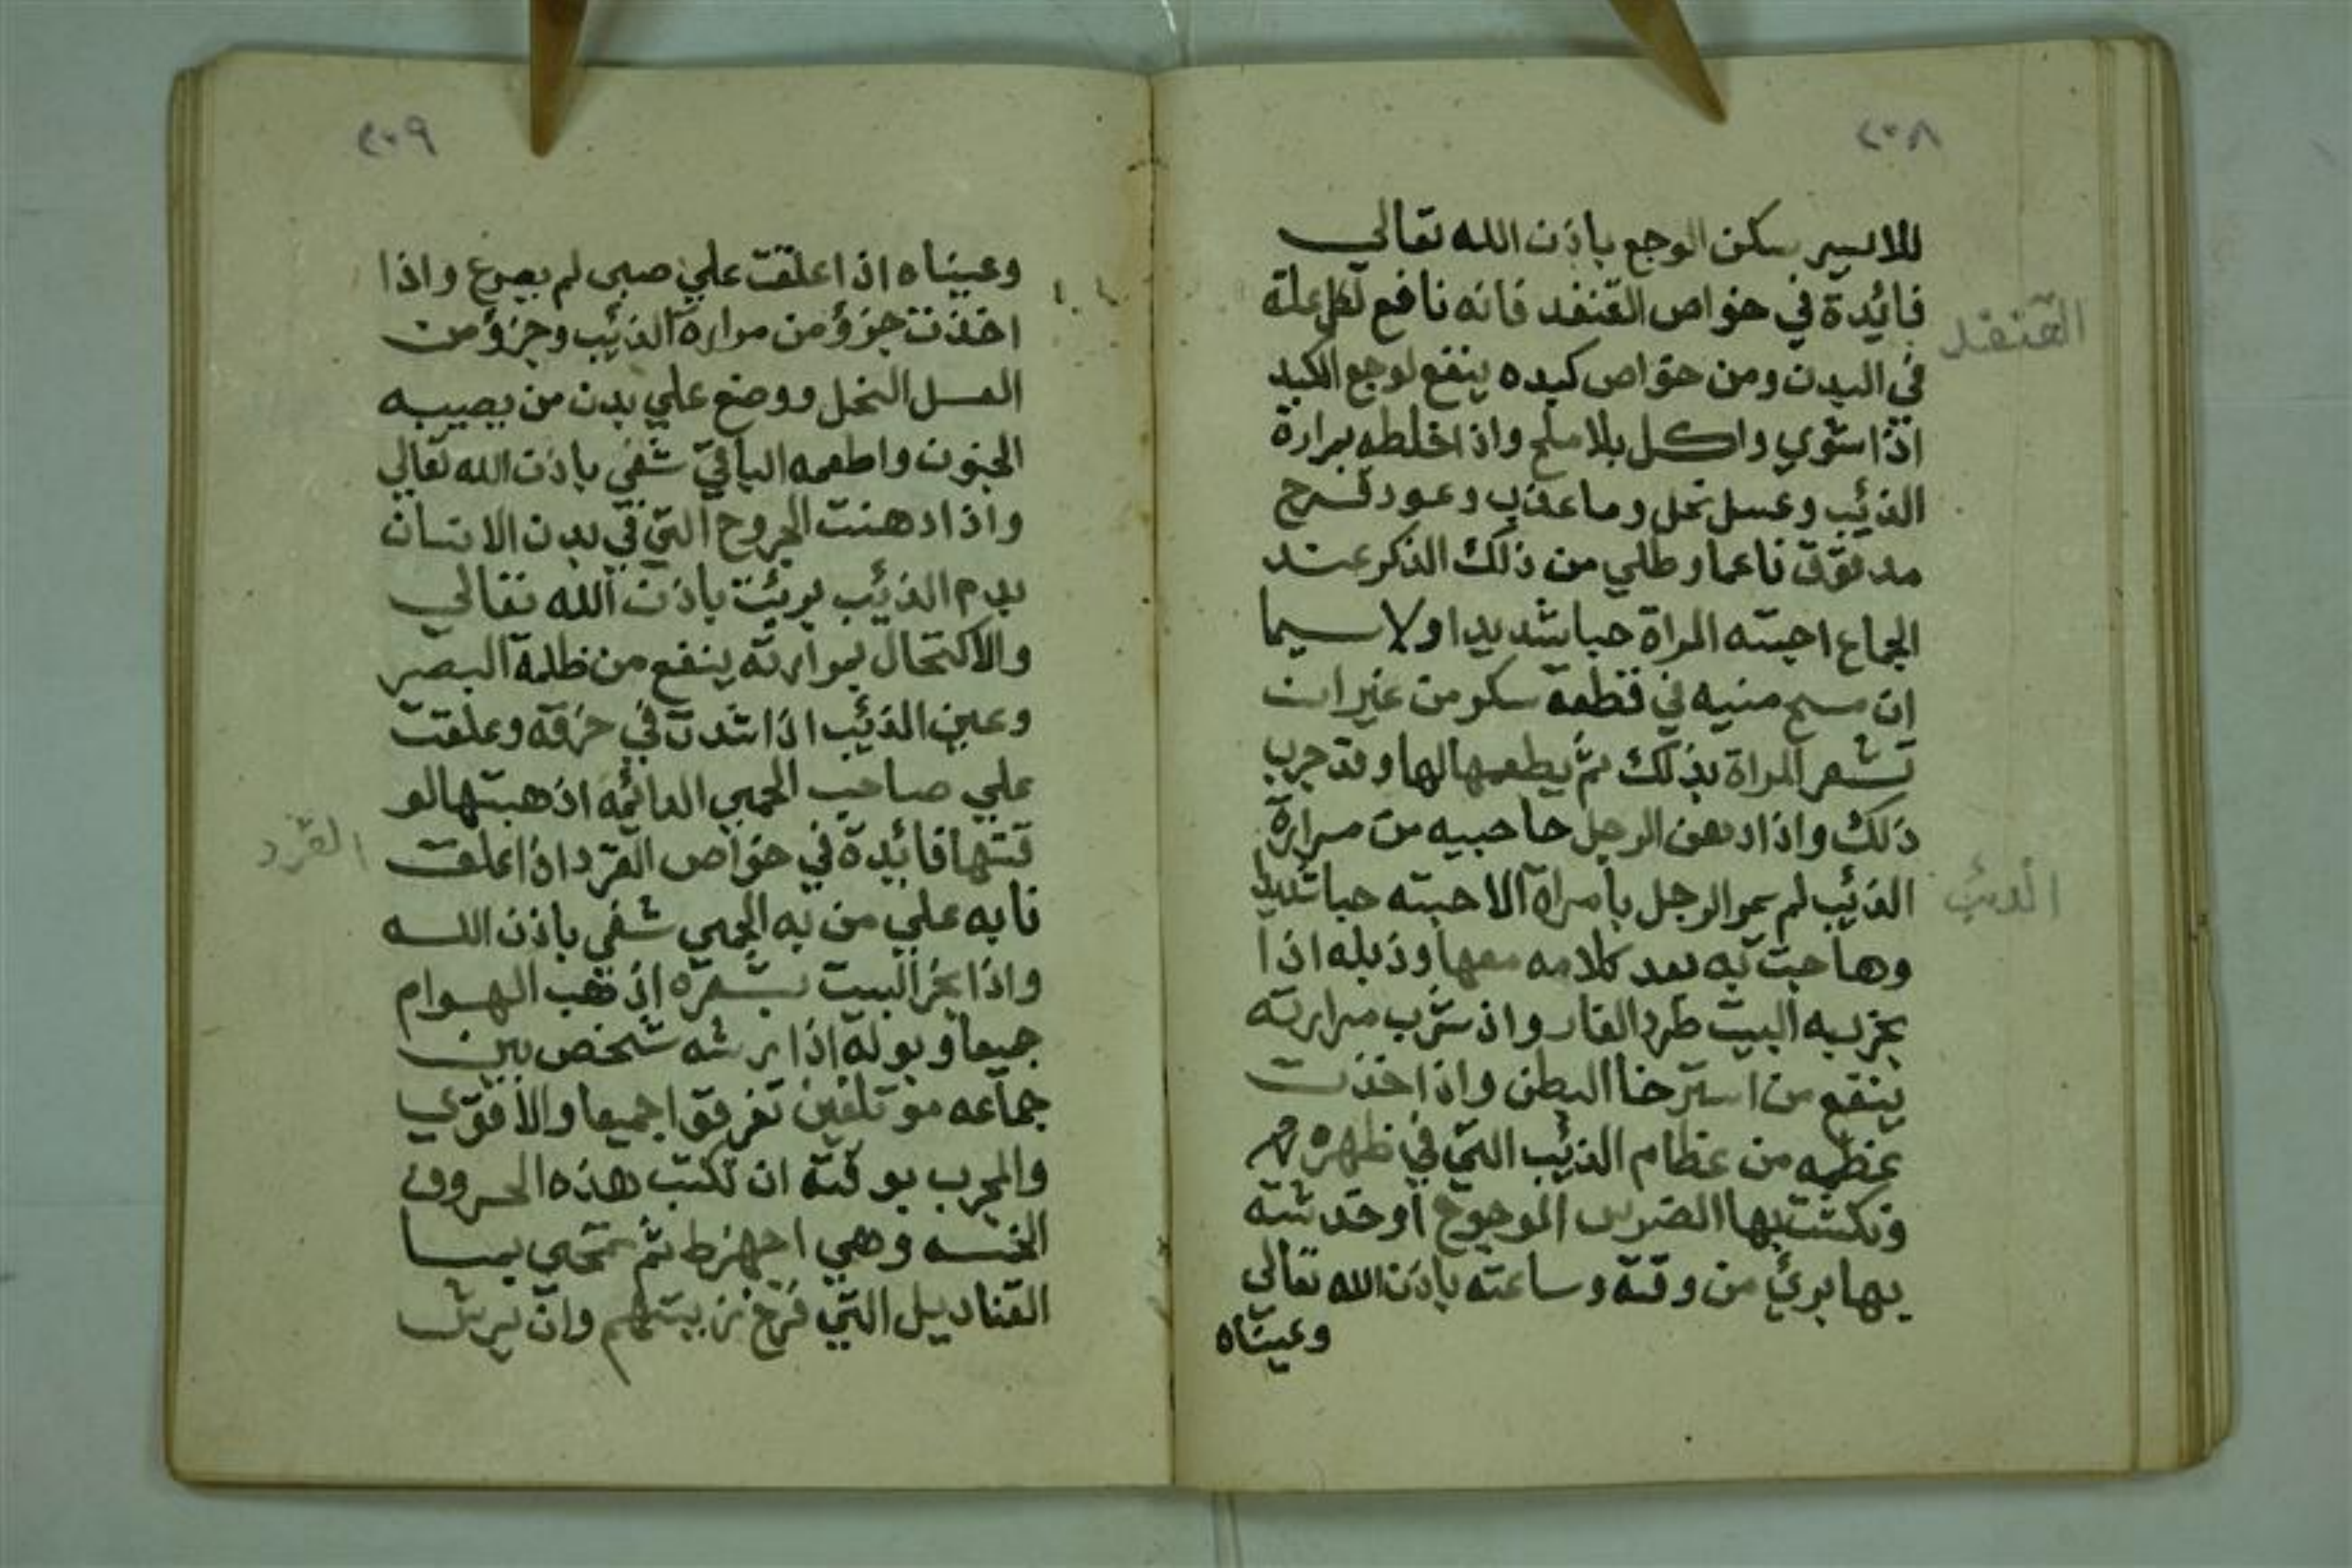 ٢٠٨
للايسر يسكن الوجع باذن الله تعالي
القنفد
فائدة في خواص القنفد فانه نافع لكل علة
في البدن ومن خواص كبده ينفع لوجع الكبد
اذا ستوي واكل بلا ملح واذا خلطه بمرارة
الذئب وعسل نحل وما عذب وعود قرح
مدقوق ناعما وطلي من ذلك الذكر عند
الجماع احبته المراة حبا شديدا ولاسيما
ان مسح منيه في قطعة سكر من غير ان
تشعر المراة بذلك ثم يطعمها لها وقد جرب
ذلك واذا دهن الرجل حاجبيه من مرارة
الذئب
الذئب لم يمر الرجل بامراة الا احبته حبا شديدا
وهاجت به بعد كلامه معها وذبله اذا
بخر به البيت طرد الفار واذ شرب مرارته
ينفع من استرخا البطن واذا اخذت
عظمه من عظام الذئب التي في ظهره
ونكشت بها الضرس الموجوع او خدشته
بها برئ من وقته وساعته باذن الله تعالي
وعيناه
٢٠٩
وعيناه اذا علقت علي صبي لم يصرع واذا
اخذت جزؤ من مرارة الذئب وجزؤ من
العسل النحل ووضع علي بدن من يصيبه
الجنون واطعمه الباقي شفي باذن الله تعالي
واذا دهنت الجروح التي في بدن الانسان
بدم الذئب بريت باذن الله تعالي
والاكتحال بمرارته ينفع من ظلمة البصر
وعين الذئب اذا شدت في خرقه وعلقت
علي صاحب الحمي الدائمه اذهبتها لو
القرد
قتها فائدة في خواص القرد اذا علقت
نابه علي من به الحمي شفي باذن الله
واذا بخر البيت بشعره اذهب الهوام
جميعا وبوله اذا رشه شخص بين
جماعه موتلفين تفرقوا جميعا والاقوي
والمجرب بوقته ان تكتب هذه الحروف
الخمسه وهي اجهزط ثم تمحي بما
القناديل التي وان يرش